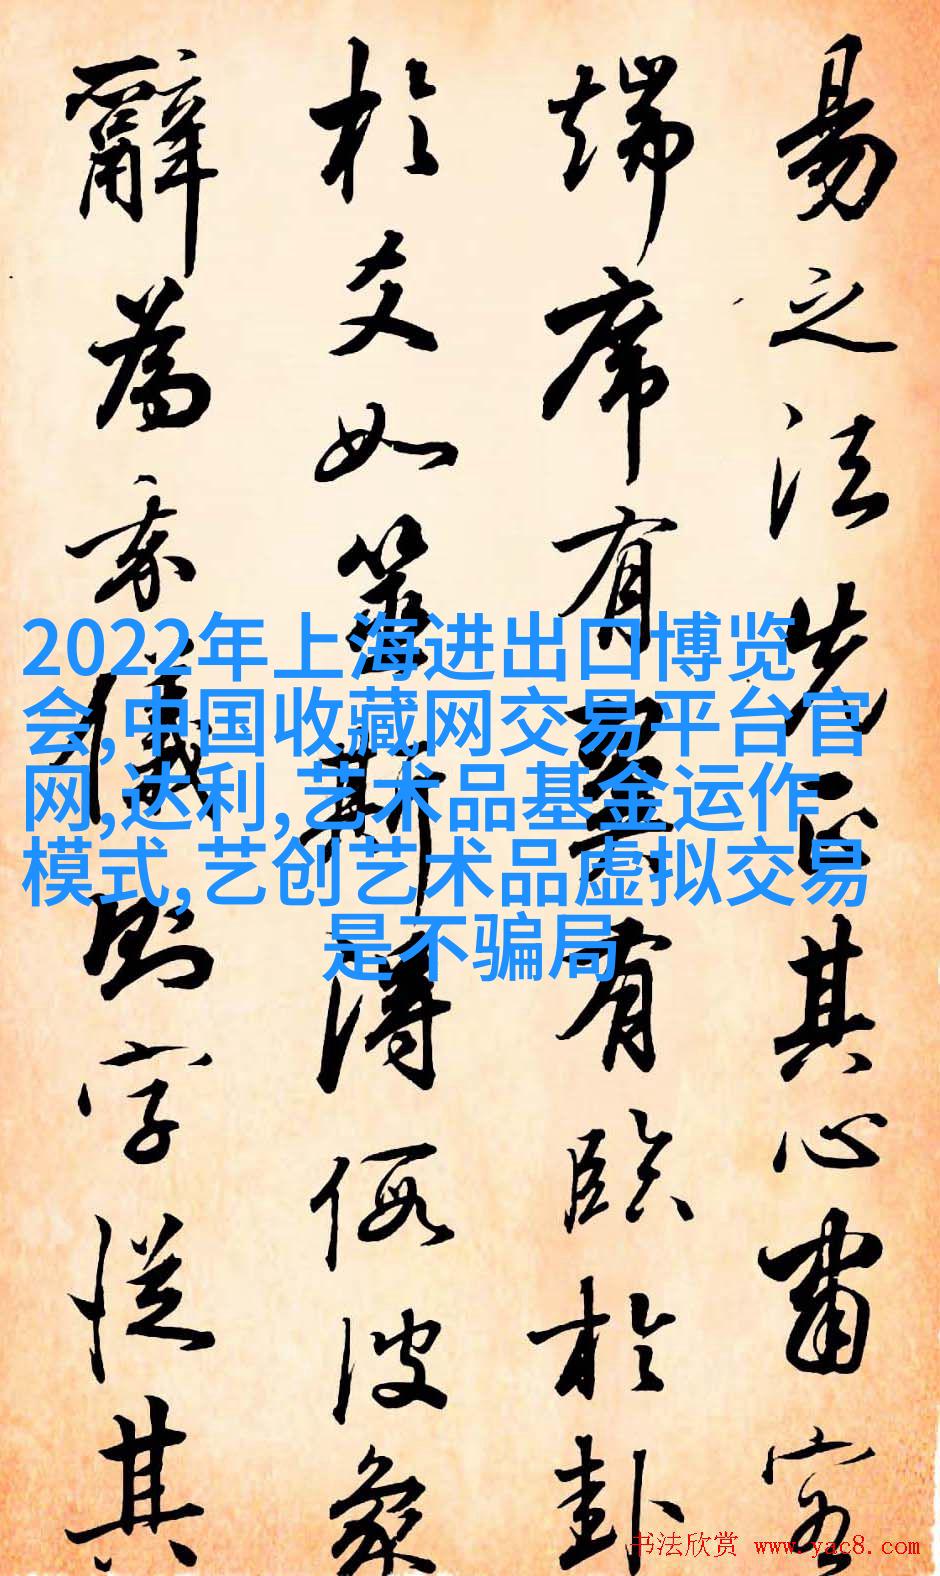 易之法先正其心肅容
端席有翼有臨於卦
於爻如筮斯得假彼象
辭為儀則字從其
2022年上海进出口博览
会,中国收藏网交易平台官
网,达利,艺术品基金运作
模式,艺创艺术品虚拟交易
是不骗局
书法欣赏 www.yac8.com